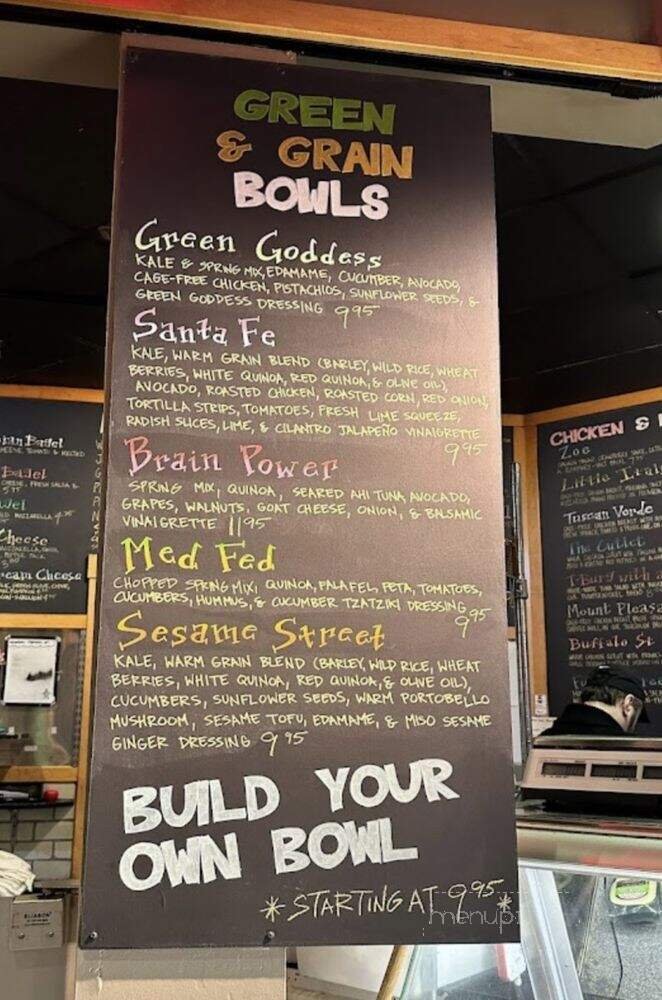 GREEN
& GRAIN
BOWLS
Green Goddess
KALE & SPRING MIX, EDAMAME, CUCUMBER, AVOCADO,
CAGE-FREE CHICKEN, PISTACHIOS, SUNFLOWER SEEDS, &
GREEN GODDESS DRESSING 9.95
Santa Fe
KALE, WARM GRAIN BLEND (BARLEY, WILD RICE, WHEAT
BERRIES, WHITE QUINOA, RED QUINOA, & OLIVE OIL),
AVOCADO, ROASTED CHICKEN, ROASTED CORN, RED ONION,
TORTILLA STRIPS, TOMATOES, FRESH LIME SQUEEZE,
RADISH SLICES, LIME, & CILANTRO JALAPEÑO VINAIGRETTE
9.95
Brain Power
SPRING MIX, QUINOA, SEARED AHI TUNA, AVOCADO,
GRAPES, WALNUTS, GOAT CHEESE, ONION, & BALSAMIC
VINAIGRETTE 11.95
Med Fed
CHOPPED SPRING MIX, QUINOA, FALAFEL, FETA, TOMATOES,
CUCUMBERS, HUMMUS, & CUCUMBER TZATZIKI DRESSING
9.95
Sesame Street
KALE, WARM GRAIN BLEND (BARLEY, WILD RICE, WHEAT
BERRIES, WHITE QUINOA, RED QUINOA, & OLIVE OIL),
CUCUMBERS, SUNFLOWER SEEDS, WARM PORTOBELLO
MUSHROOM, SESAME TOFU, EDAMAME, & MISO SESAME
GINGER DRESSING 9.95
BUILD YOUR
OWN BOWL
* STARTING AT 9.95 *
menup
Cheese
Cream Cheese
CHICKEN &
Zoe
Little Ital
Tuscan Verde
The Cutlet
T-Bury with
Mount Pleasa
Buffalo St